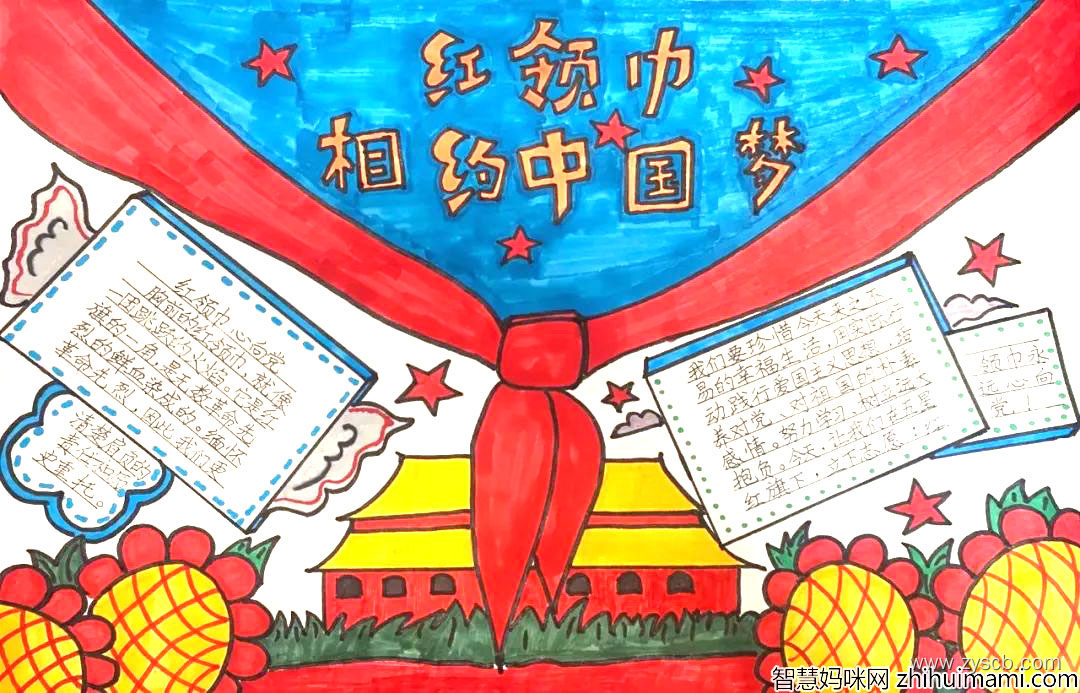 红领巾
相约中国梦
红领巾心向党
胸前的红领巾,就像
一团跳跃的火焰。它是红
旗的一角,是无数革命先
烈的鲜血染成的。缅怀
革命先烈,因此我们更
清楚肩负的
责任和历
史重托。
我们要珍惜今天来之不
易的幸福生活,用实际行
动践行爱国主义思想,培
养对党、对祖国的朴素
感情。努力学习,树立远大
抱负。今天,让我们在五星
红旗下,立下志愿:红
领巾永
远心向
党!
www.zyscb.com
智慧妈咪网 zhihuimami.com